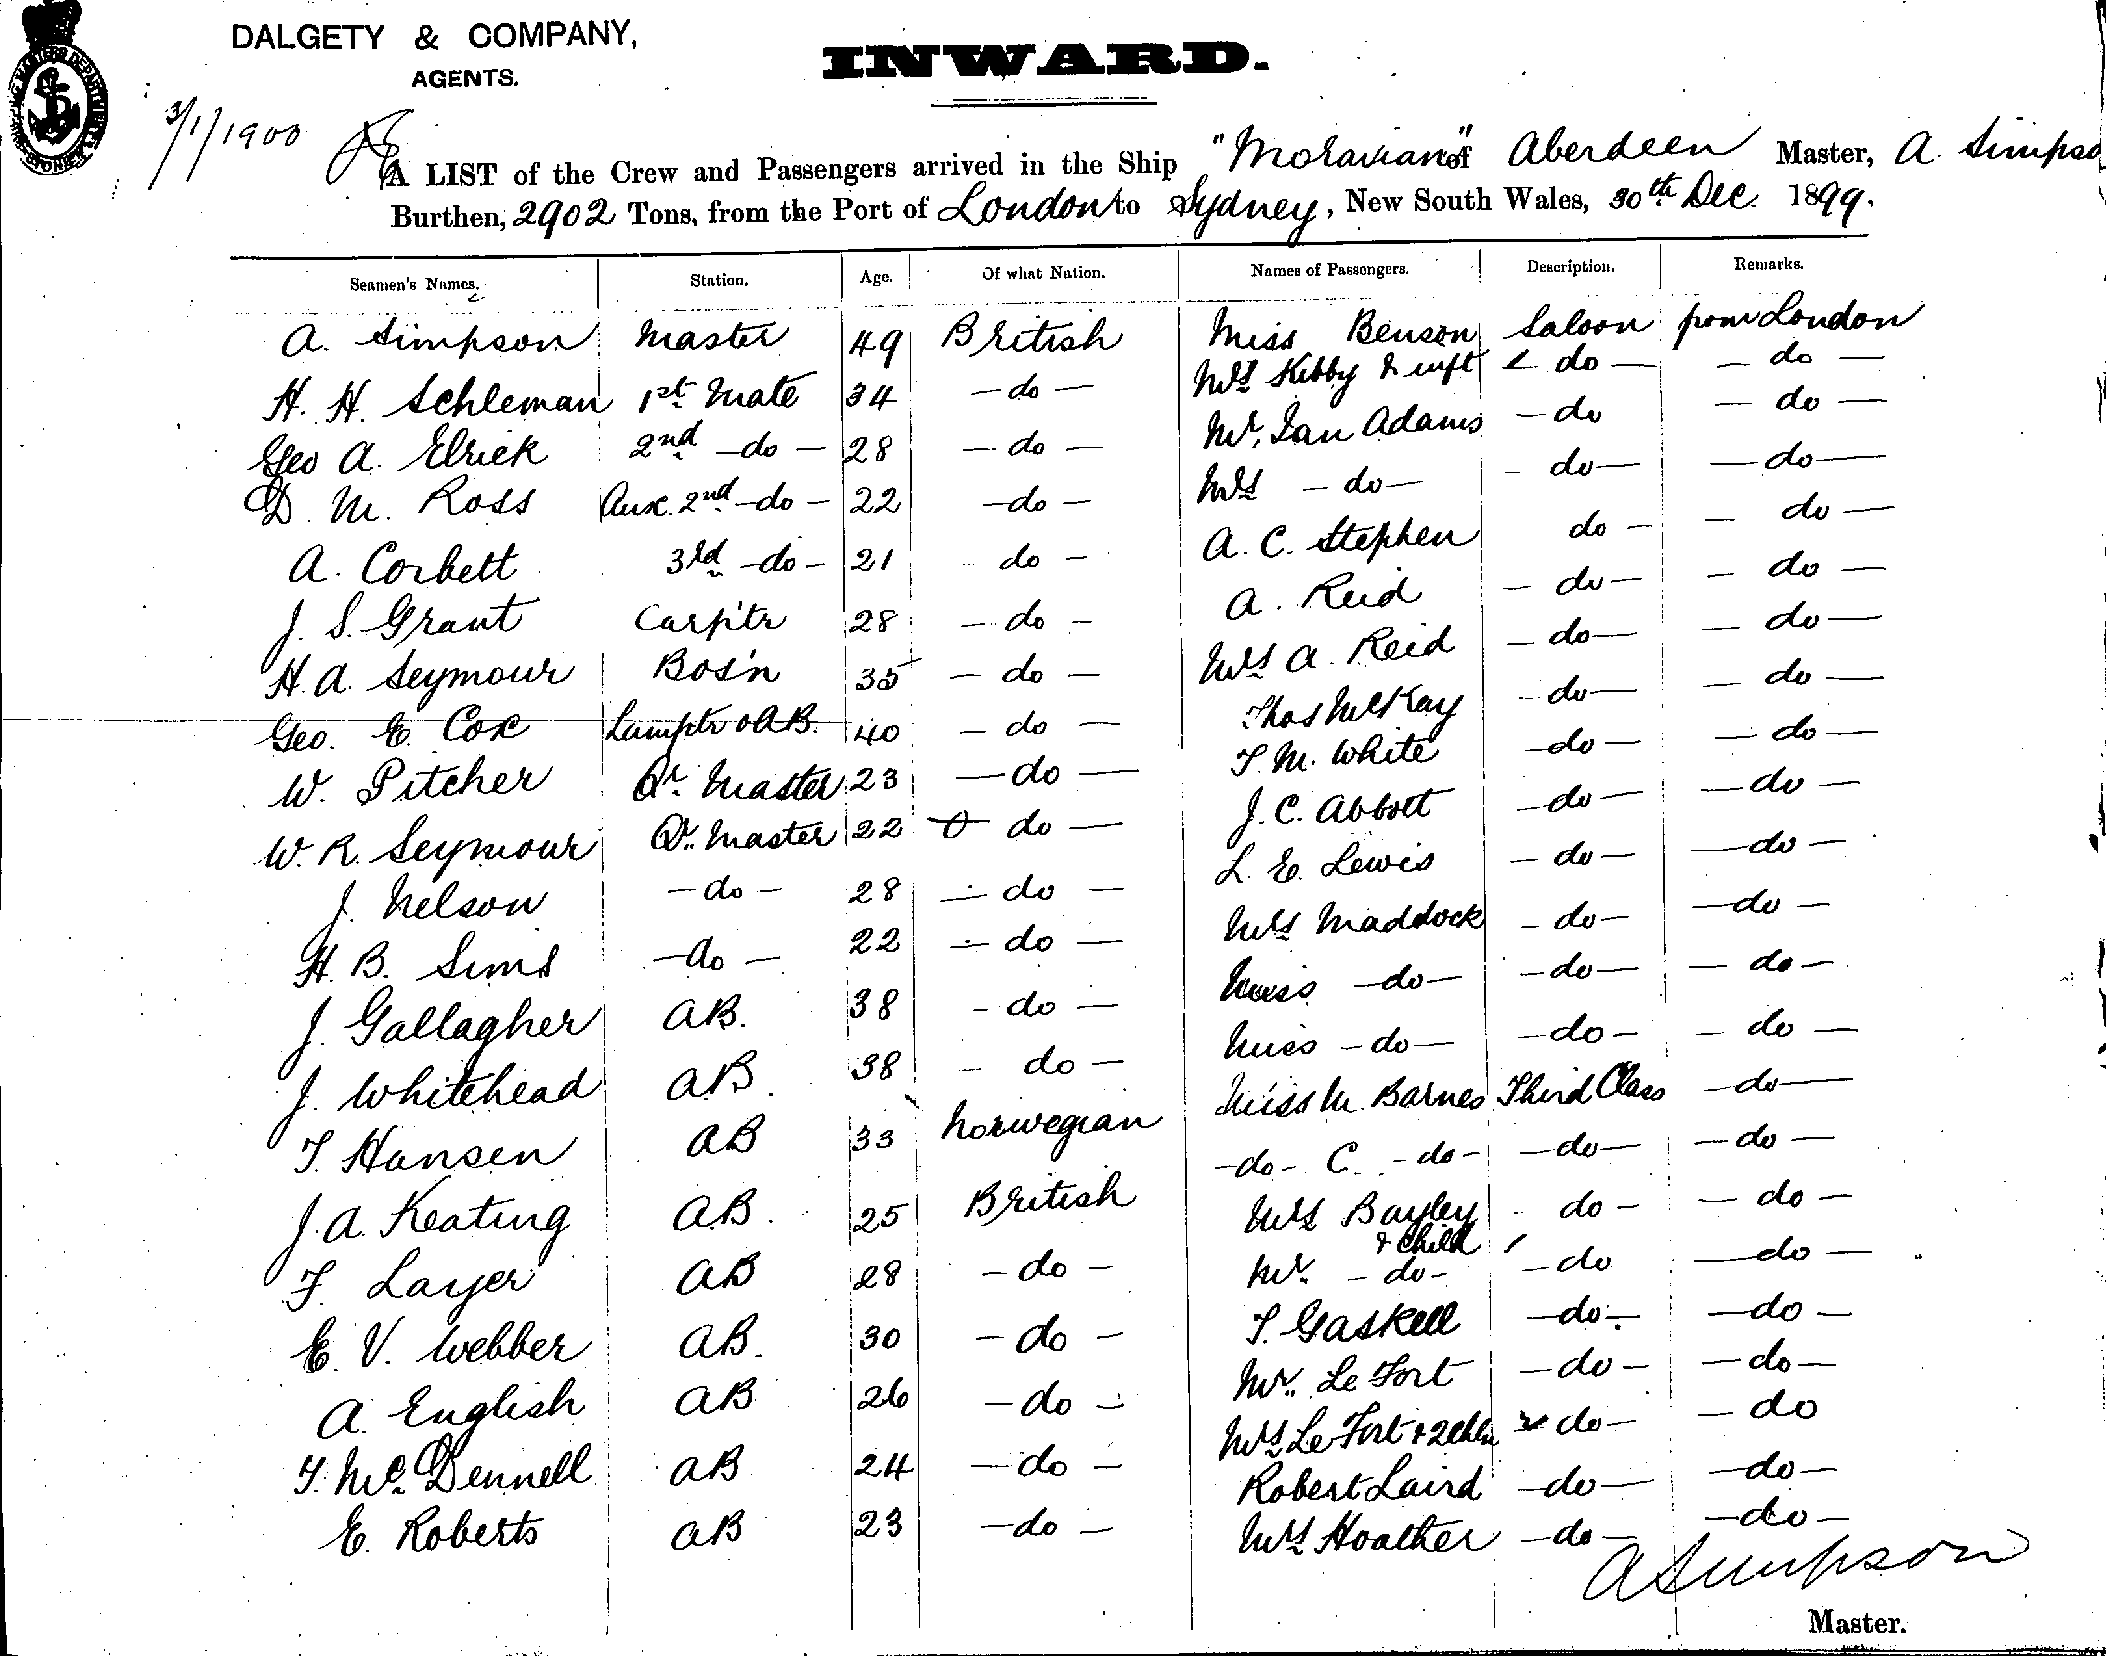 DALGETY & COMPANY,
AGENTS.
INWARD.
3/1/1900
A LIST of the Crew and Passengers arrived in the Ship "Moravian" of Aberdeen Master, A. Simpso
Burthen, 2902 Tons, from the Port of London to Sydney, New South Wales, 30th Dec. 1899.
Seamen's Names. Station. Age. Of what Nation. Names of Passengers. Description. Remarks.
A. Simpson Master 49 British Miss Benson Saloon from London
H. H. Schleman 1st Mate 34 - do - Mrs Kibby & inft - do - - do -
Geo A. Elrick 2nd - do - 28 - do - Mr. Ian Adams - do - do -
D. M. Ross Aux. 2nd - do - 22 - do - Mrs - do - - do - - do -
A. Corbett 3rd - do - 21 do - A. C. Stephen do - - do -
J. S. Grant Carp'tr 28 - do - A. Reid - do - - do -
H. A. Seymour Bos'n 35 - do - Mrs A. Reid - do - - do -
Geo. E. Cox Lamptr & AB. 40 - do - Thos McKay - do - - do -
W. Pitcher Qr. Master 23 - do - T. M. White - do - - do -
W. R. Seymour Qr. Master 22 do - J. C. Abbott - do - - do -
J. Nelson - do - 28 - do - L. E. Lewis - do - - do -
H. B. Sims - do - 22 - do - Mrs Maddock - do - - do -
J. Gallagher AB. 38 - do - Miss - do - - do - - do -
J. Whitehead AB. 38 - do - Miss - do - - do - - do -
T. Hansen AB 33 Norwegian Miss M. Barnes Third Class - do -
J. A. Keating AB. 25 British - do - C. - do - - do - - do -
F. Layer AB 28 - do - Mrs Bayley & Child - do - - do -
E. V. Webber AB. 30 - do - Mr. - do - - do - do -
A. English AB 26 - do - T. Gaskell - do - - do -
T. McDennell AB 24 - do - Mr. Le Fort - do - - do -
E. Roberts AB 23 - do - Mrs Le Fort & 2 chln - do - - do
Robert Laird - do - - do -
Mrs Hoather - do - - do -
A Simpson
Master.